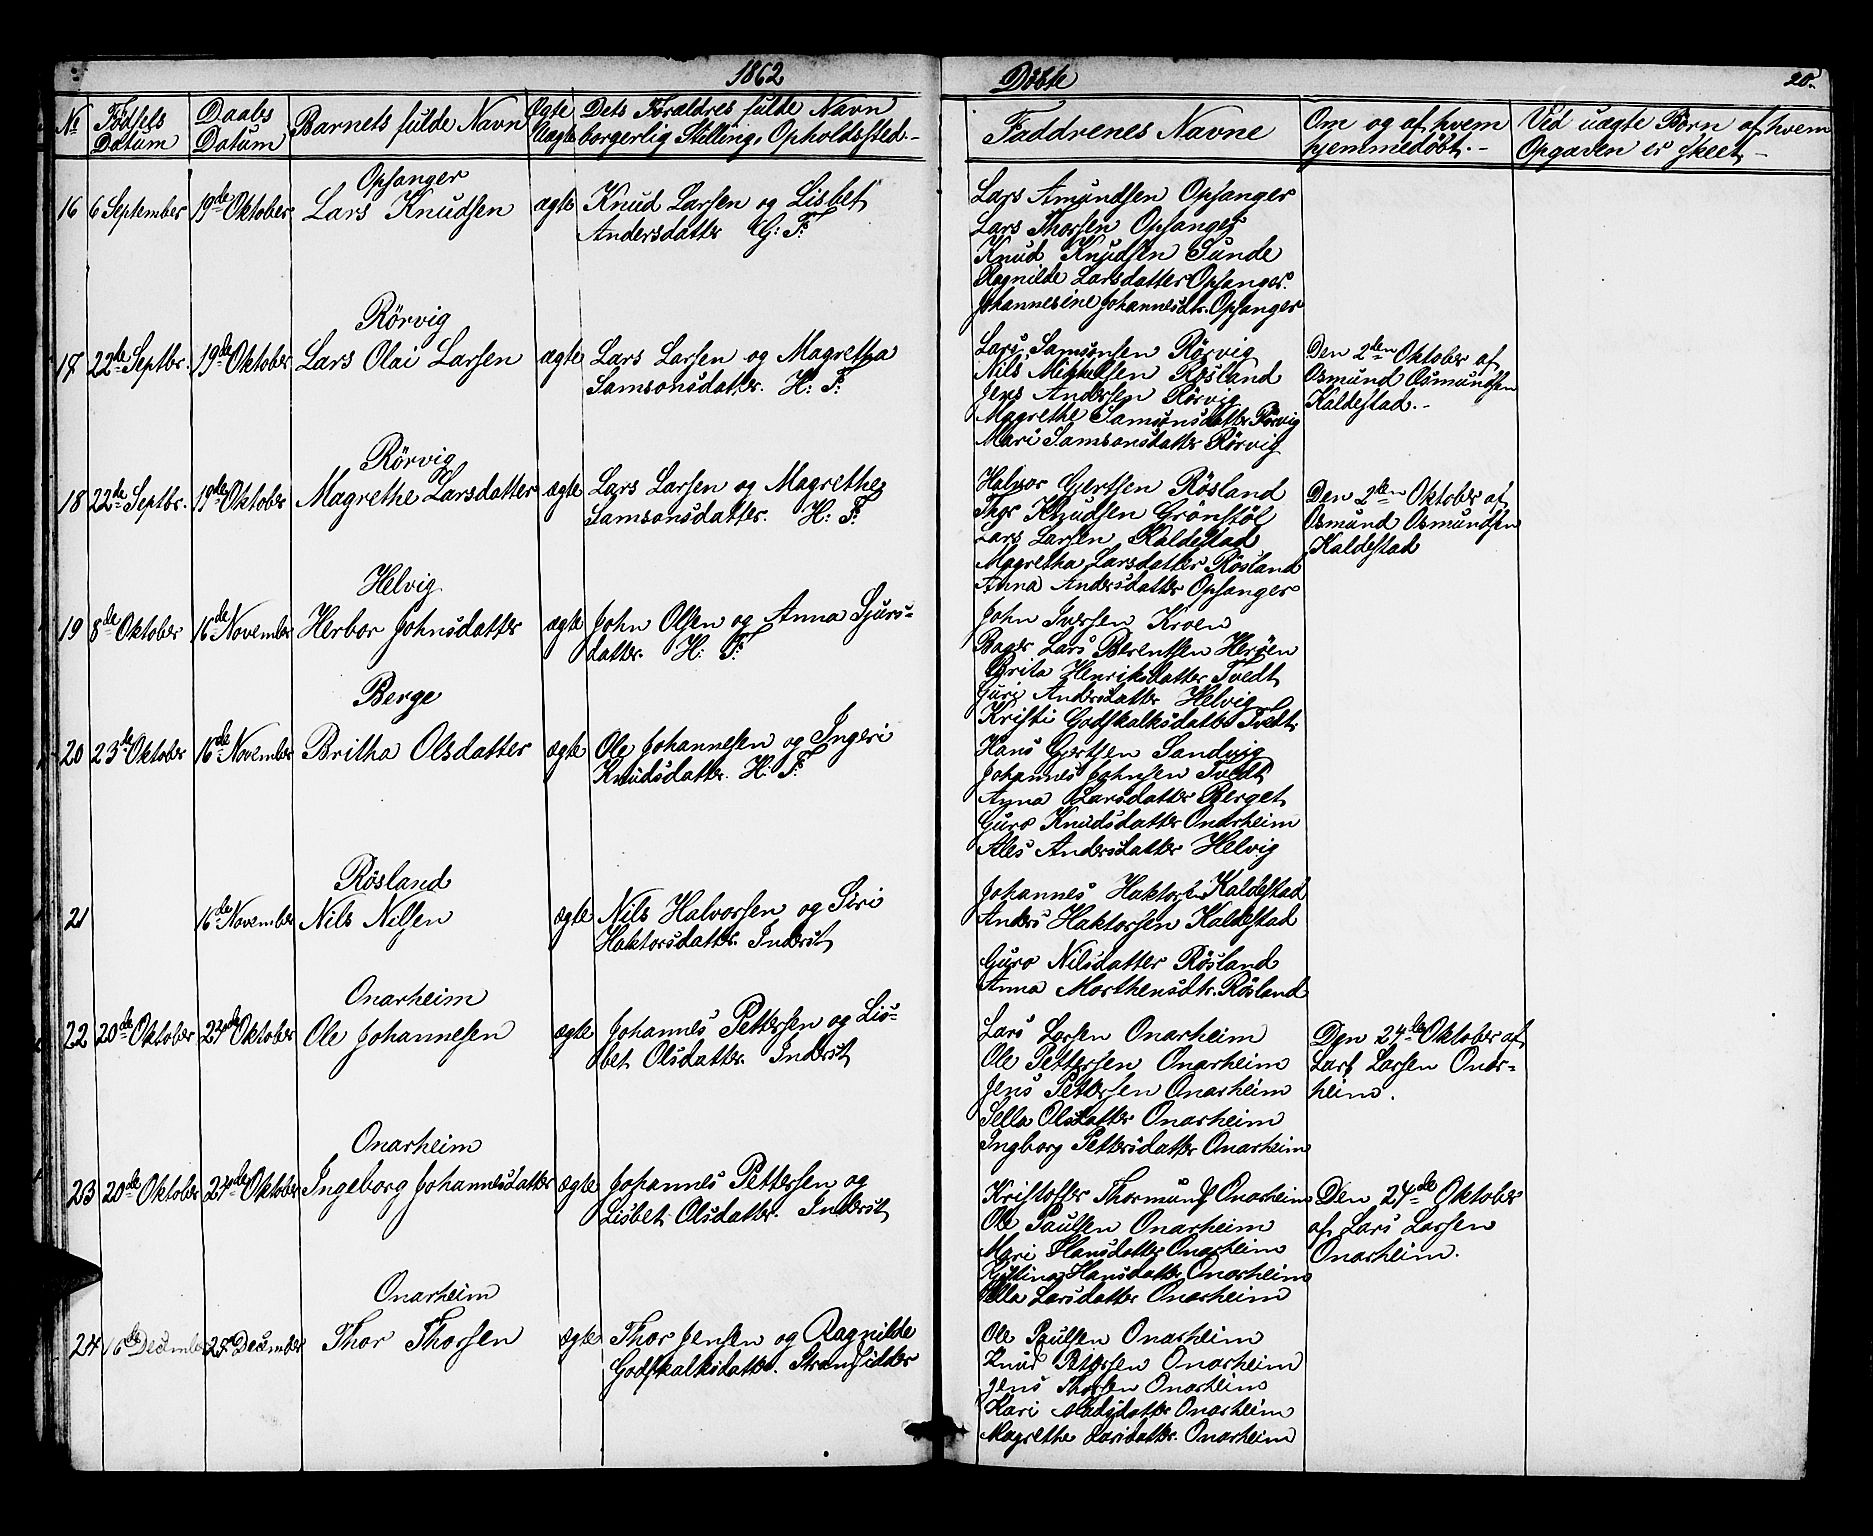 1862
Døbte
20.
No
Fødsels
Datum
Daabs
Datum
Barnets fulde Navn
Ægte
Uægte
Dets Forældres fulde Navn
borgerlig Stilling, Opholdssted
Faddrenes Navne
Om og af hvem
hjemmedøbt.
Ved uægte Børn af hvem
Opgaven er skeet
Opsanger
16 6 September 19de Oktober Lars Knudsen ægte Knud Larsen og Lisbet
Andersdatter G: F:
Lars Amundsen Opsanger
Lars Thorsen Opsanger
Knud Knudsen Sunde
Ragnilde Larsdatter Opsanger.
Johannesine Johannesdtr. Opsanger
Rörvig
17 22de Septbr. 19de Oktober Lars Olai Larsen ægte Lars Larsen og Magretha
Samsonsdatter. H: F:
Lars Samsonsen Rörvig
Nils Mikkelsen Rösland
Jens Andersen Rörvig
Magrethe Samsonsdatter Rörvig
Mari Samsonsdatter Rörvig
Den 2den Oktober af
Osmund Osmundsen
Kaldestad.
Rörvig
18 22de Septbr. 19de Oktober Magrethe Larsdatter ægte Lars Larsen og Magrethe
Samsonsdatter. H: F:
Halvor Gertsen Rösland
Knudsen Grönstöl
Lars Larsen Kaldestad
Magretha Larsdatter Rösland
Anna Andersdatter Opsanger
Den 2den Oktober af
Osmund Osmundsen
Kaldestad
Helvig
19 8de Oktober 16de November Herbor Johnsdatter ægte John Olsen og Anna Sjurs-
datter. H: F:
John Iversen Kroen
Bager Lars Berentsen Heröen
Brita Henriksdatter Tvedt
Guri Andersdatter Helvig
Kristi Godskalksdatter Tvedt
Berge
20 23de Oktober 16de November Britha Olsdatter ægte Ole Johannesen og Ingeri
Knudsdatter. H: F:
Hans Gjertsen Sandvig
Johannes Johnsen Tvedt
Anna Larsdatter Berget
Guro Knudsdatter Onarheim
Ales Andersdatter Helvig
Rösland
21 16de November Nils Nilsen ægte Nils Halvorsen og Siri
Haktorsdatter. Inderst
Johannes Haktorsen Kaldestad
Anders Haktorsen Kaldestad
Guro Nilsdatter Rösland
Anna Morthensdtr. Rösland
Onarheim
22 20de Oktober 24de Oktober Ole Johannesen ægte Johannes Pettersen og Lis-
bet Olsdatter. Inderst
Lars Larsen Onarheim
Ole Pettersen Onarheim
Jens Pettersen Onarheim
Sella Olsdatter Onarheim
Ingborg Pettersdatter Onarheim
Den 24de Oktober af
Lars Larsen Onar-
heim.
Onarheim
23 20de Oktober 24de Oktober Ingeborg Johannesdatter ægte Johannes Pettersen og
Lisbet Olsdatter. Inderst
Kristoffer Onarheim
Ole Paulsen Onarheim
Mari Hansdatter Onarheim
Hansdatter Onarheim
Larsdatter Onarheim
Den 24de Oktober
af Lars Larsen
Onarheim.
Onarheim
24 16de Desember 25de Desember Thor Thorsen ægte Thor Jensen og Ragnilde
Godskalksdatter. Strandsidder
Ole Paulsen Onarheim
Knud Petersen Onarheim
Jens Thorsen Onarheim
Kari Madsdatter Onarheim
Magrethe Larsdatter. Onarheim